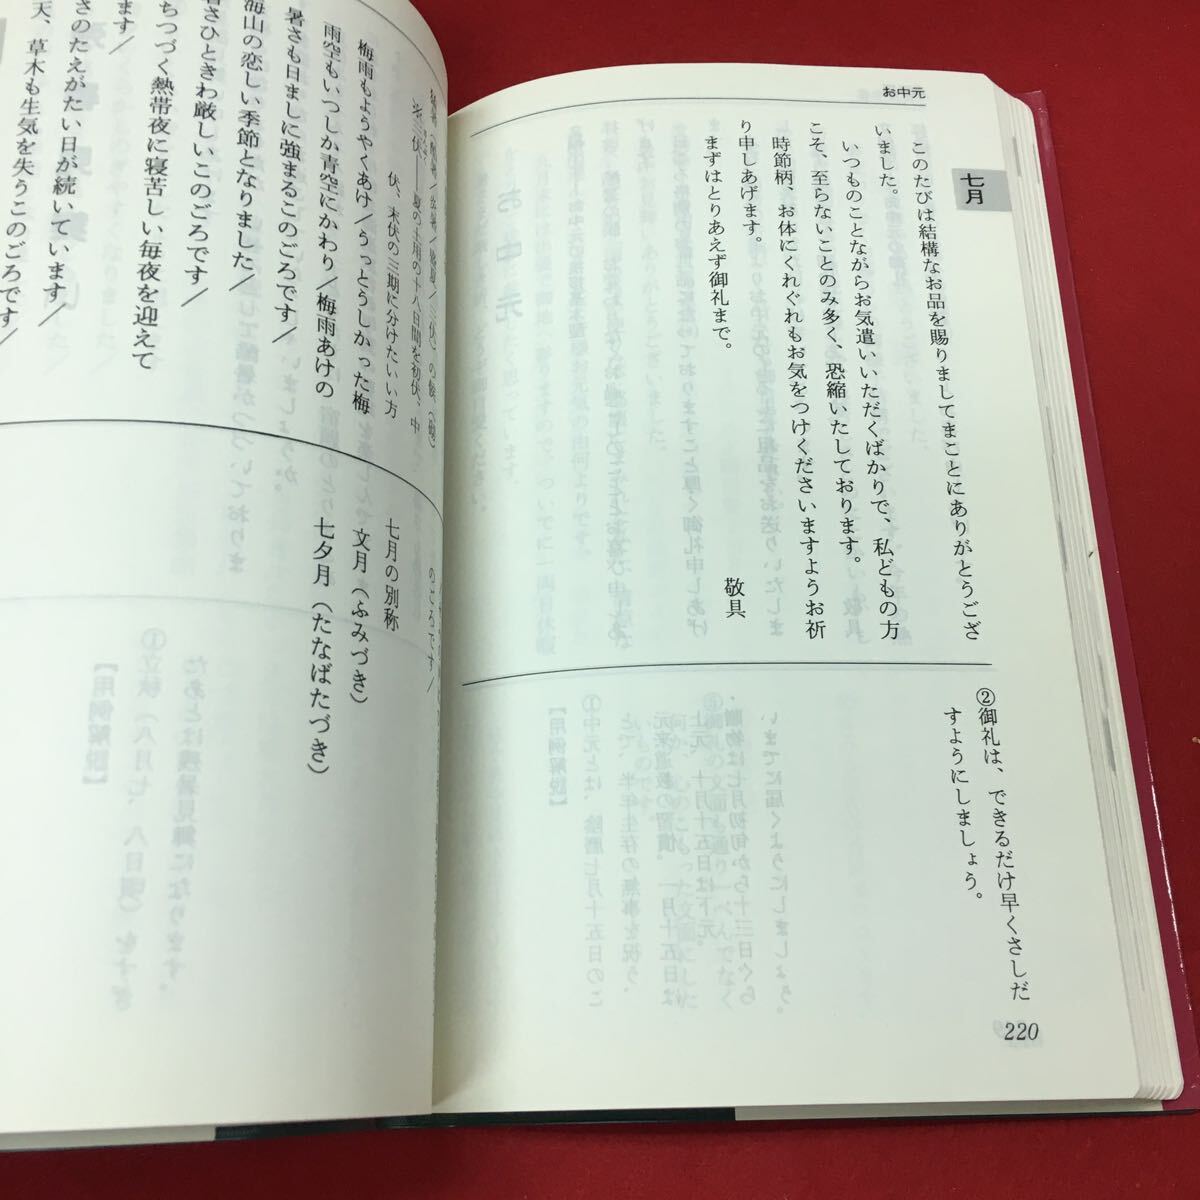 お中元
七月
このたびは結構なお品を賜りましてまことにありがとうござ
いました。
いつものことながらお気遣いいただくばかりで、私どもの方
こそ、至らないことのみ多く、恐縮いたしております。
時節柄、お体にくれぐれもお気をつけくださいますようお祈
り申しあげます。
まずはとりあえず御礼まで。
敬具
②御礼は、できるだけ早くさしだ
すようにしましょう。
220
の候、
※三伏──夏の土用の十八日間を初伏、中
伏、末伏の三期に分けたいい方
梅雨もようやくあけ/うっとうしかった梅
雨空もいつしか青空にかわり/梅雨あけの
暑さも日ましに強まるこのごろです/
海山の恋しい季節となりました/
暑さひときわ厳しいこのごろです/
ちつづく熱帯夜に寝苦しい毎夜を迎えて
ます/
さのたえがたい日が続いています/
天、草木も生気を失うこのごろです/
のごろです/
七月の別称
文月(ふみづき)
七夕月(たなばたづき)